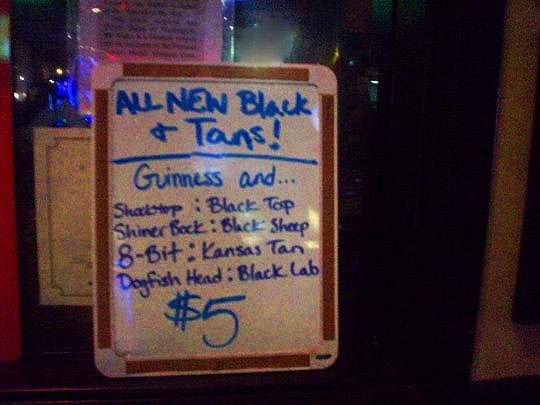 ALL NEW Black
& Tans!
Guinness and...
Shocktop : Black Top
Shiner Bock : Black Sheep
8-Bit : Kansas Tan
Dogfish Head : Black Lab
$5